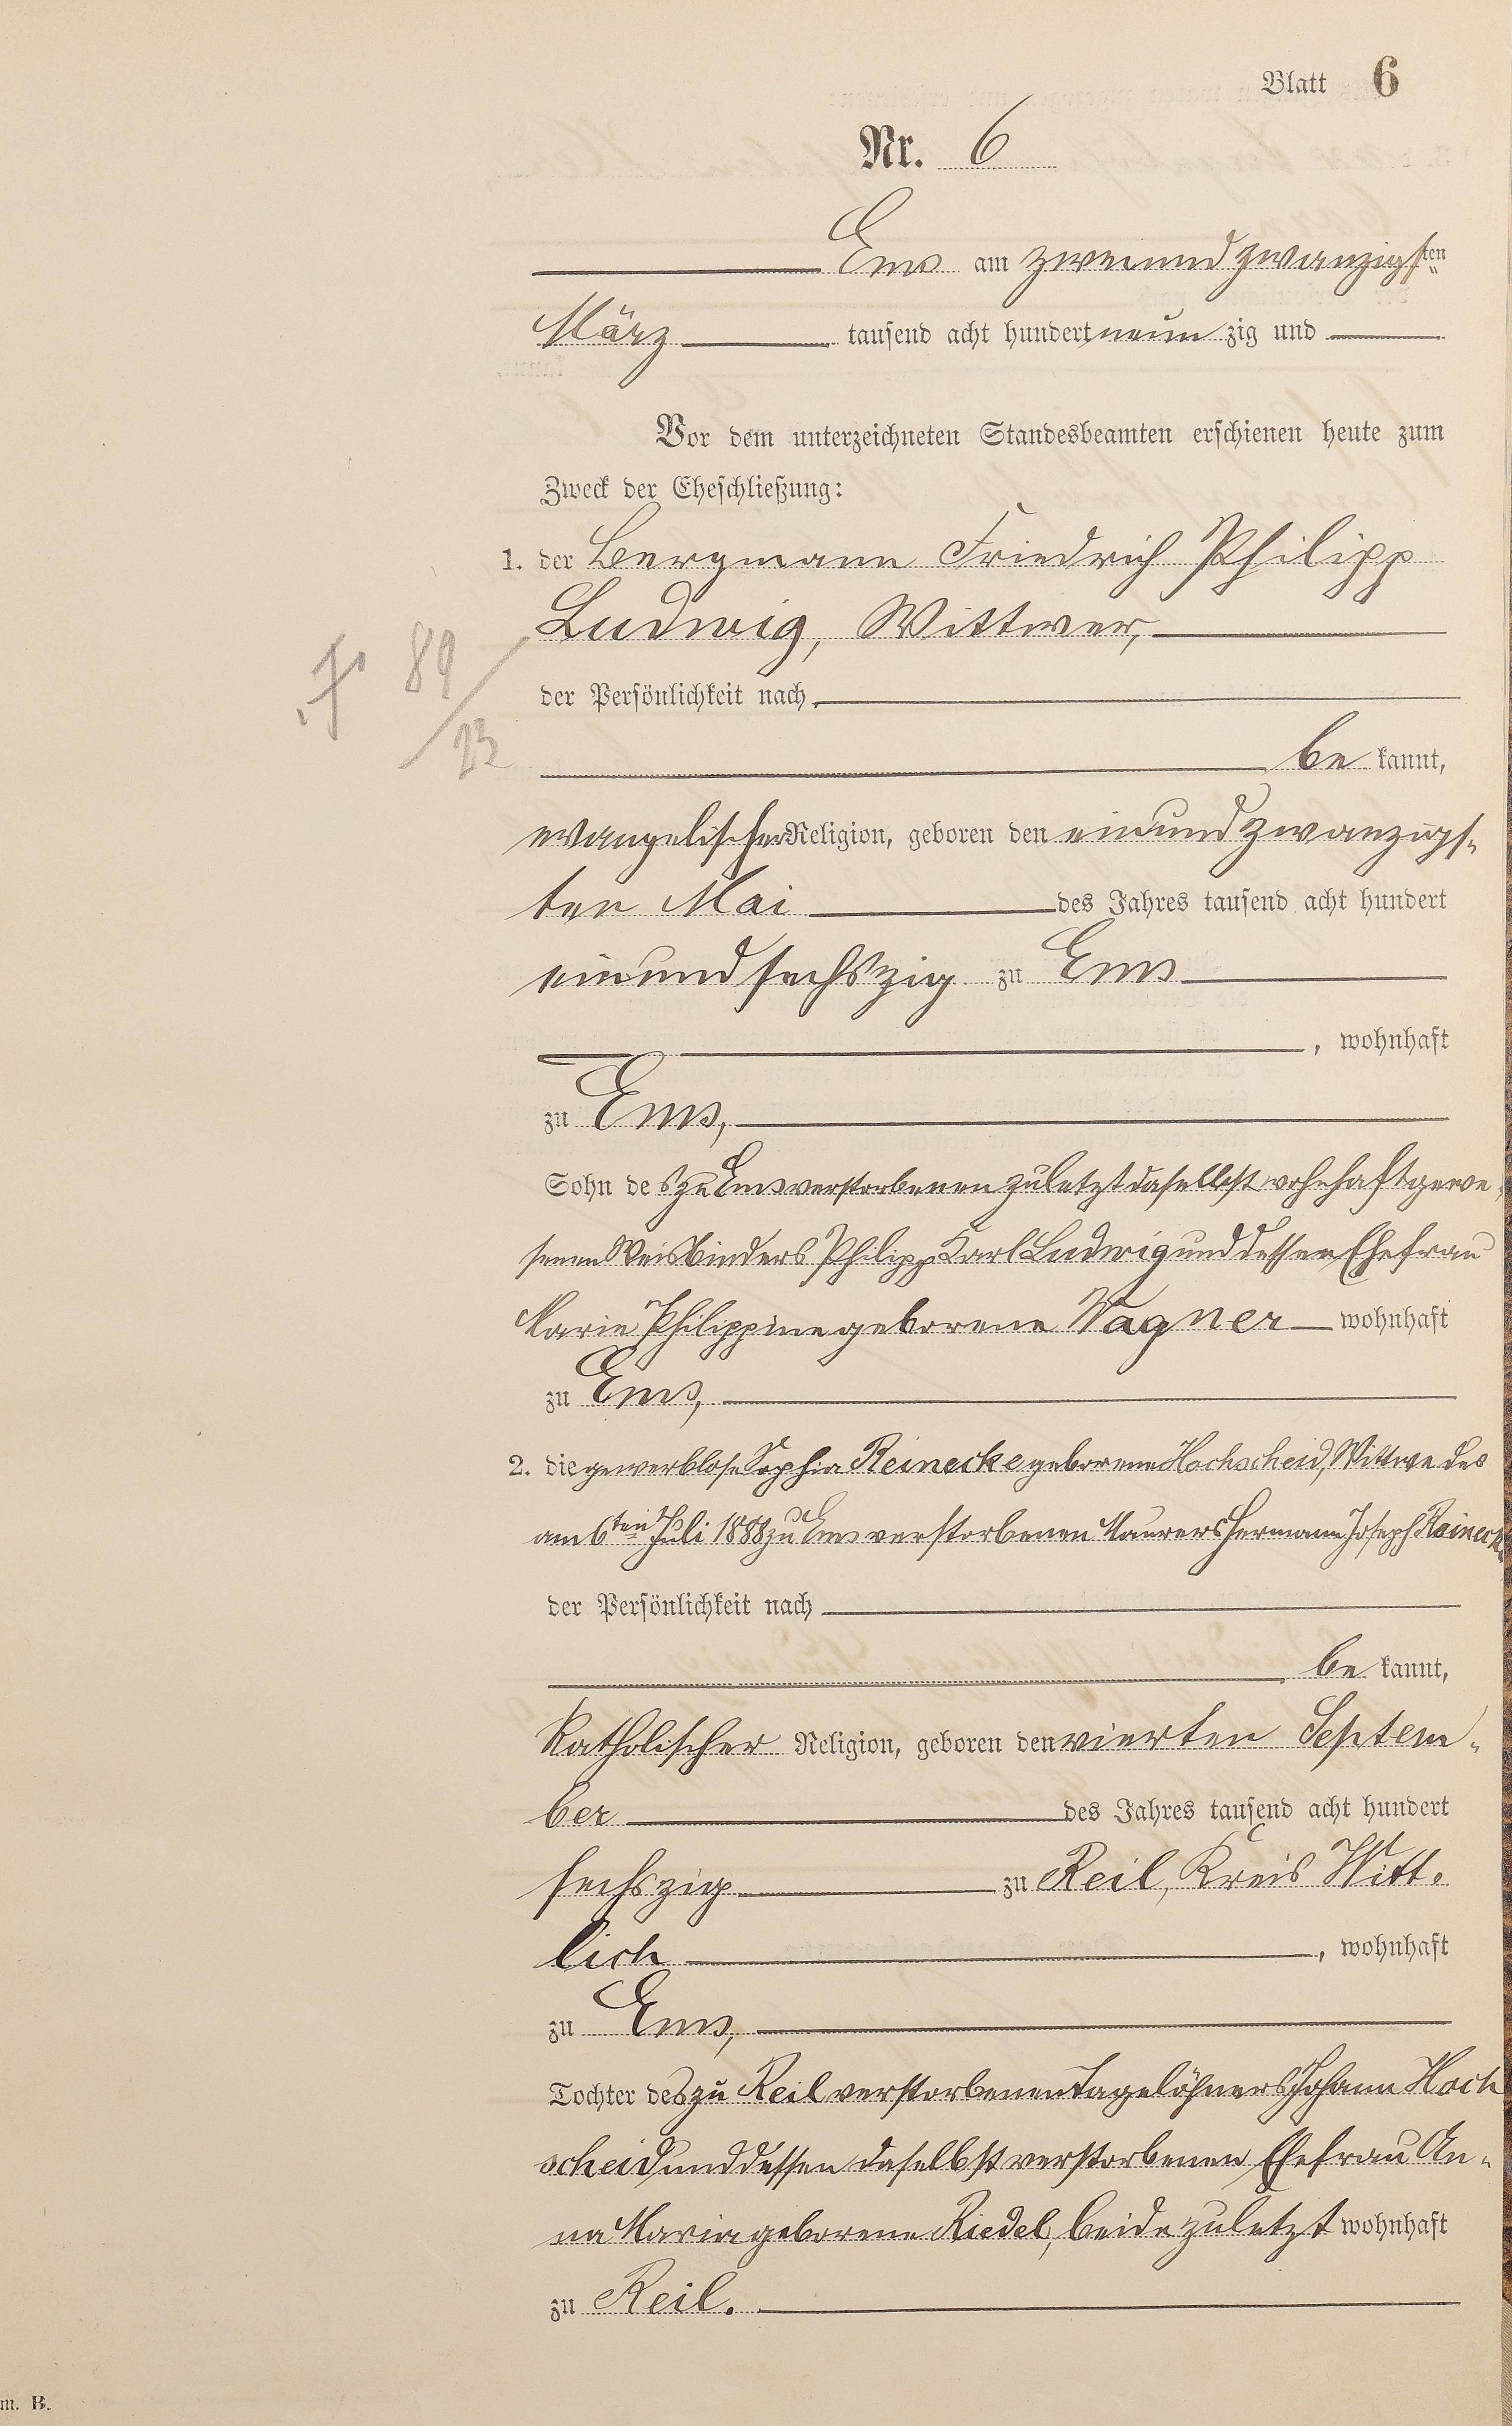 Blatt 6
Nr. 6
Ems am zweiund zwanzigsten
März tausend acht hundert neun zig und
Vor dem unterzeichneten Standesbeamten erschienen heute zum
Zweck der Eheschließung:
1. der Bergmann Friedrich Philipp
Ludwig, Wittwer,
der Persönlichkeit nach
be kannt,
evangelischer Religion, geboren den einundzwanzigs-
ten Mai des Jahres tausend acht hundert
einundsechszig zu Ems
, wohnhaft
zu Ems,
Sohn des zu Ems verstorbenen zuletzt daselbst wohnhaft gewe-
senen Weisbinders Philipp Karl Ludwig und dessen Ehefrau
Marie Philippine geborene Wagner wohnhaft
zu Ems,
2. die gewerblose Sophia Reinecke geborene Hochscheid, Wittwe des
am 6ten Juli 1888 zu Ems verstorbenen Maurers Hermann Joseph Reinecke
der Persönlichkeit nach
be kannt,
Katholischer Religion, geboren den vierten Septem-
ber des Jahres tausend acht hundert
sechszig zu Reil, Kreis Witt-
lich , wohnhaft
zu Ems,
Tochter des zu Reil verstorbenen Tagelöhners Johann Hoch
scheid und dessen daselbst verstorbenen Ehefrau An-
na Maria geborene Riedel, beide zuletzt wohnhaft
zu Reil.
89/23
m. B.